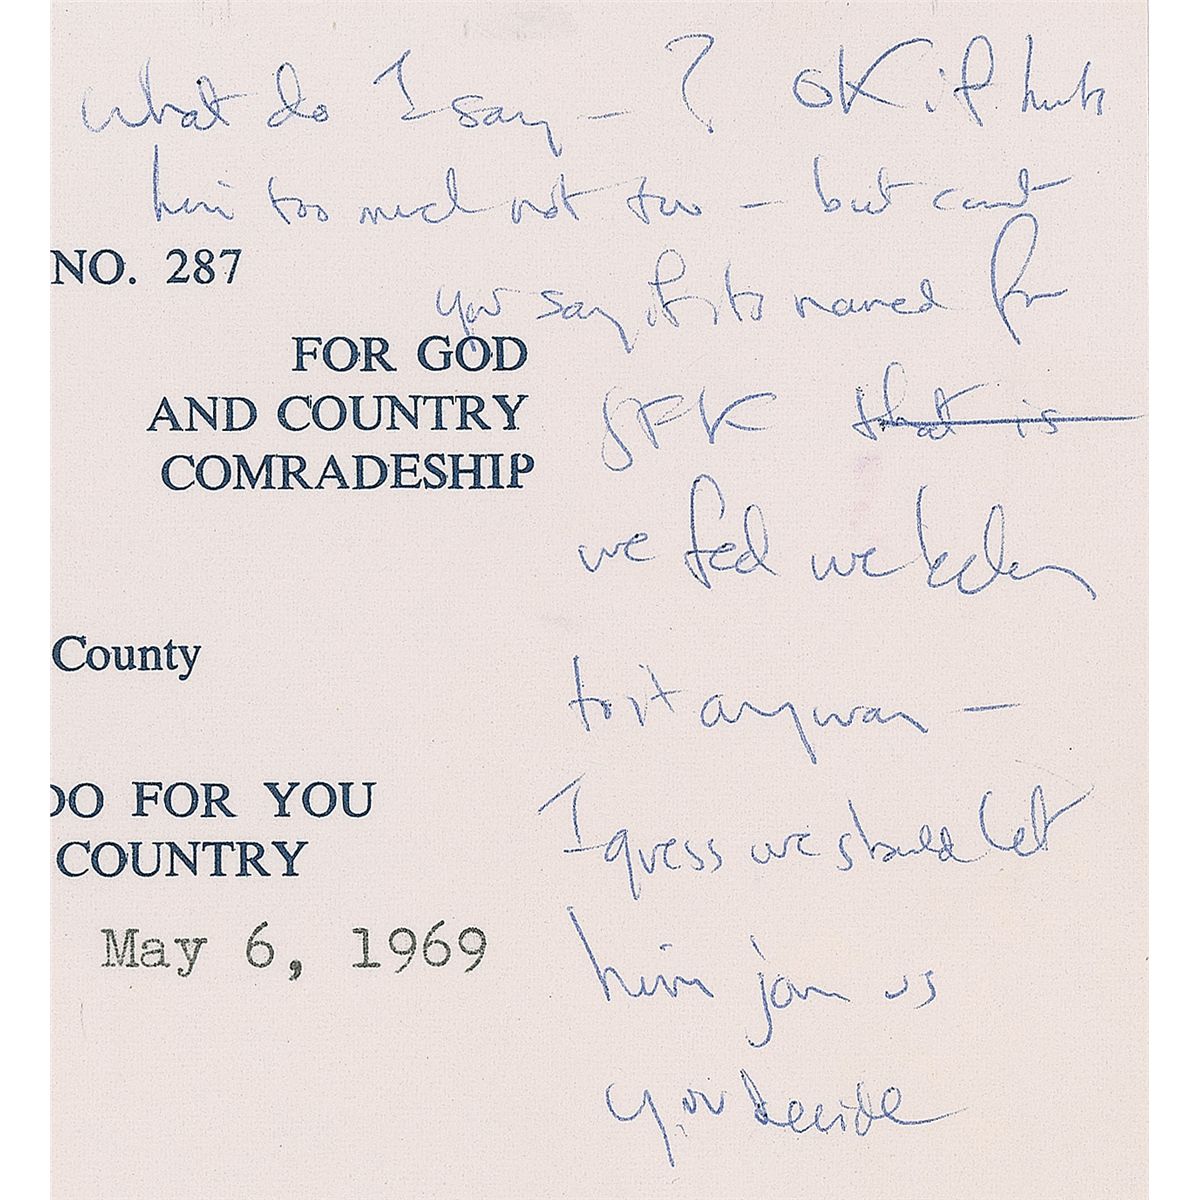 what do I say — ? OK if hurts
him too much not too — but can't
NO. 287
you say if its named for
FOR GOD
AND COUNTRY
JFK that is
COMRADESHIP
we feel we belong
County
to it anyway —
DO FOR YOU
I guess we should let
COUNTRY
May 6, 1969
him join us
you decide